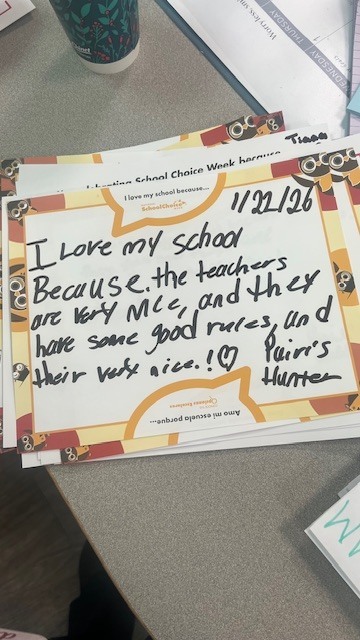 WEDNESDAY THURSDAY
Tiana
Celebrating School Choice Week because
I love my school because...
SchoolChoice
1/22/26
I Love my school
Because. the teachers
are very Nice, and they
have some good rules, and
their very nice.!♡ Yairi's
Hunter
Amo mi escuela porque...